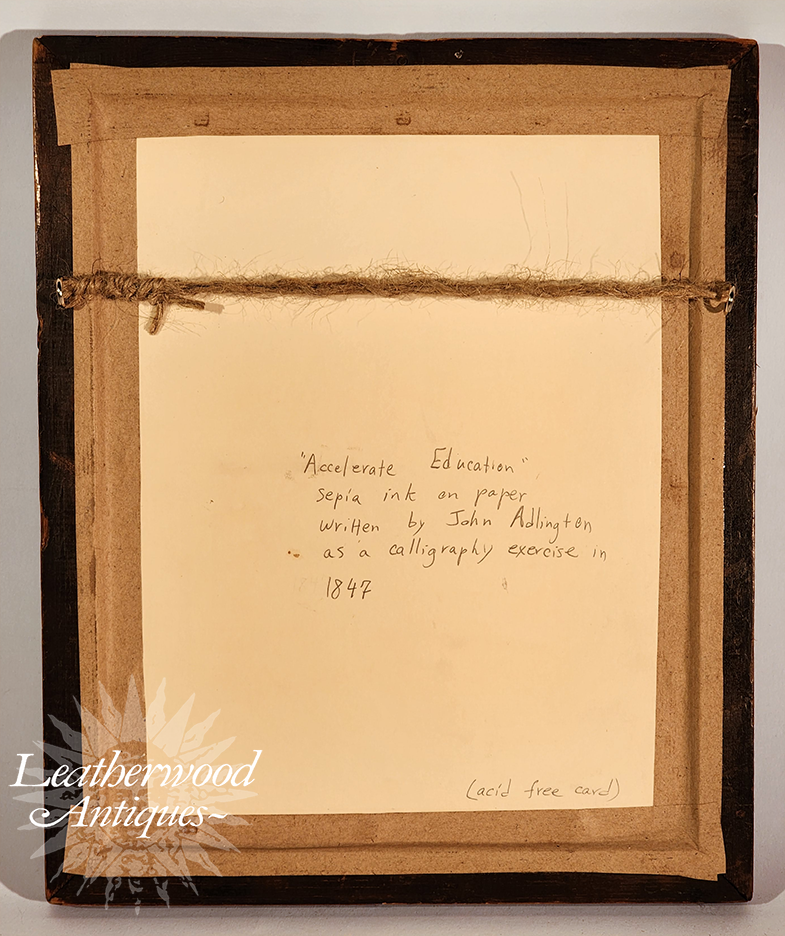 "Accelerate Education"
sepia ink on paper
written by John Adlington
as a calligraphy exercise in
1847
(acid free card)
Leatherwood
Antiques~